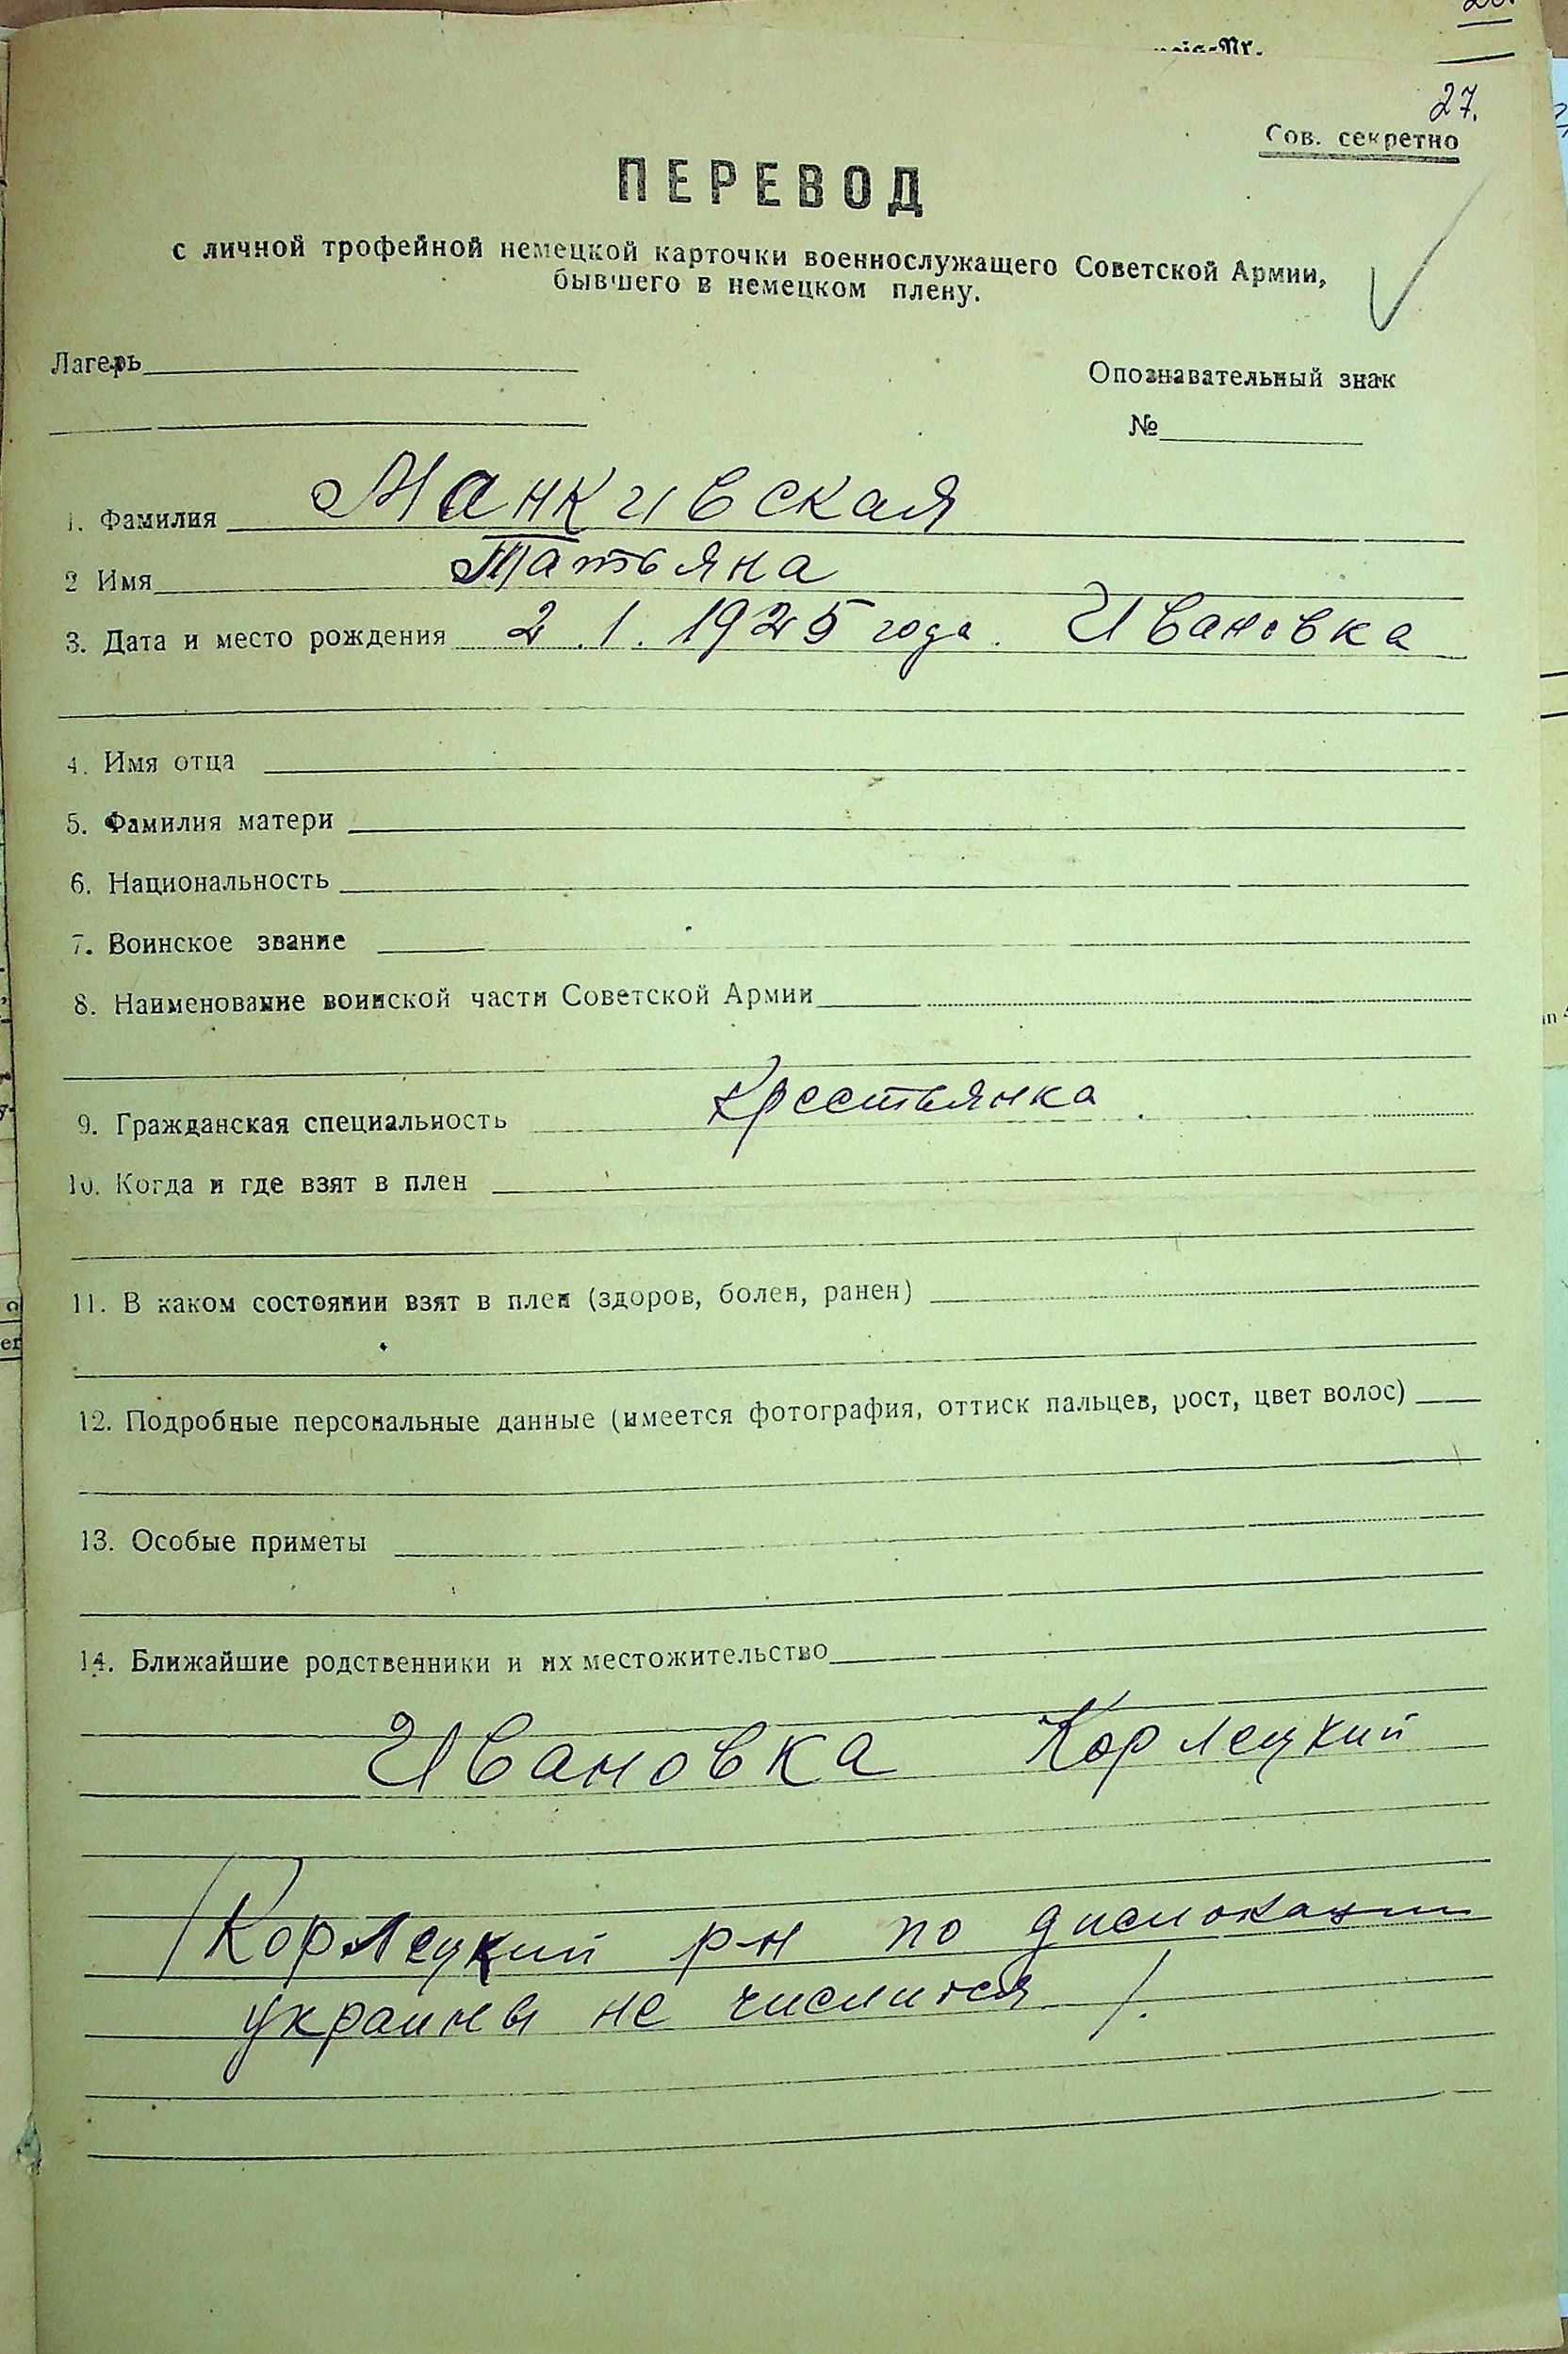 27.
Сов. секретно
ПЕРЕВОД
с личной трофейной немецкой карточки военнослужащего Советской Армии,
бывшего в немецком плену.
Лагерь
Опознавательный знак
№
1. Фамилия Манкивская
2 Имя Татьяна
3. Дата и место рождения 2.1.1925 года. Ивановка
4. Имя отца
5. Фамилия матери
6. Национальность
7. Воинское звание
8. Наименование воинской части Советской Армии
9. Гражданская специальность Крестьянка.
10. Когда и где взят в плен
11. В каком состоянии взят в плен (здоров, болен, ранен)
12. Подробные персональные данные (имеется фотография, оттиск пальцев, рост, цвет волос)
13. Особые приметы
14. Ближайшие родственники и их местожительство
Ивановка Корлецкий
/Корлецкий р-н по дислокации
украины не числится/.